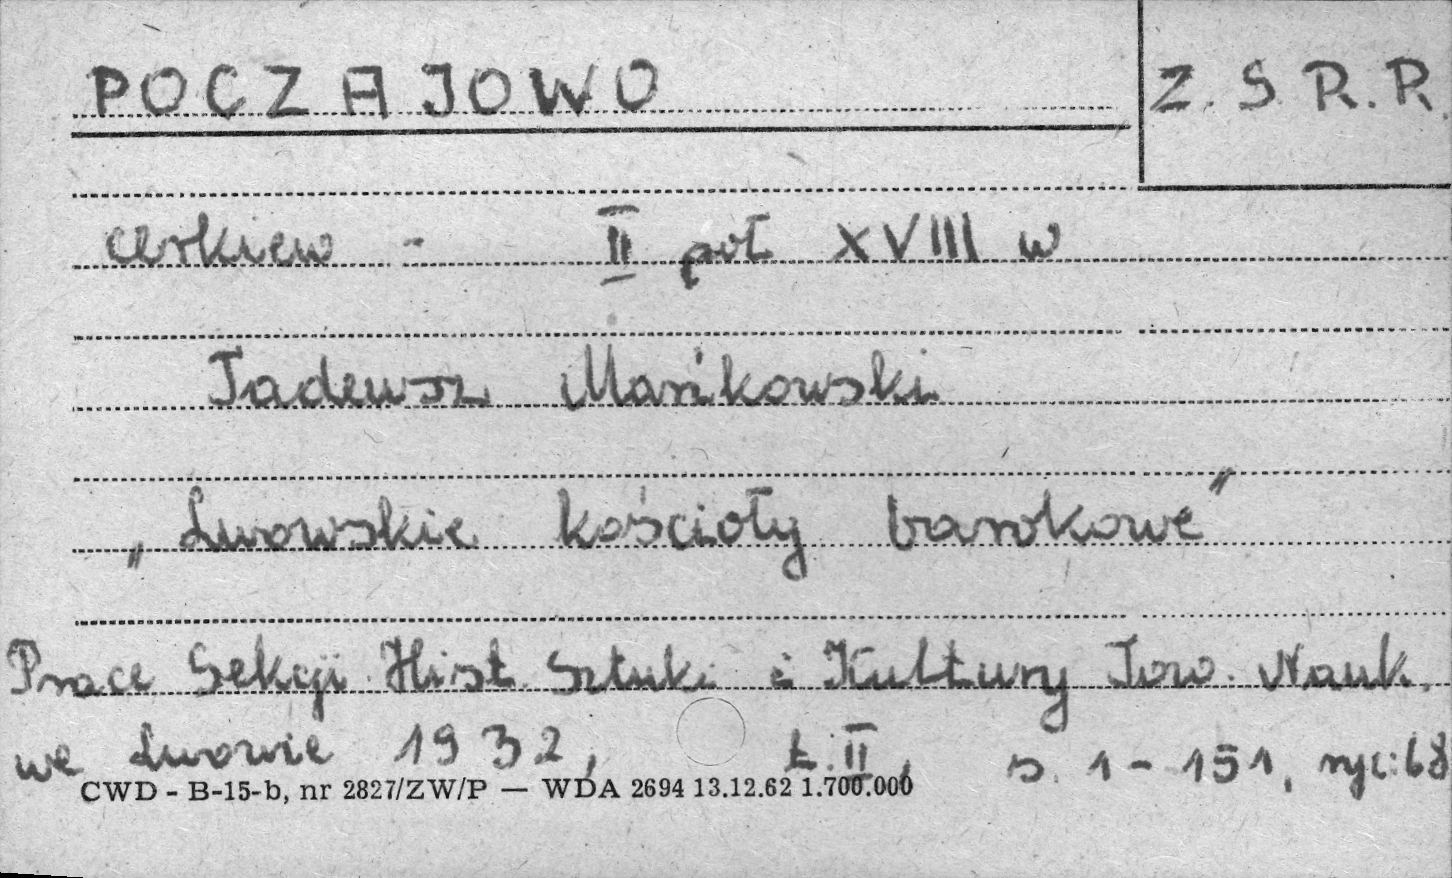 POCZAJOWO
Z.S.R.R.
cerkiew - II poł XVIII w
Tadeusz Mańkowski
„Lwowskie kościoły barokowe”
Prace Sekcji Hist. Sztuki i Kultury Tow. Nauk.
we Lwowie 1932, t. II, s. 1-151, ryc: 68
CWD - B-15-b, nr 2827/ZW/P — WDA 2694 13.12.62 1.700.000